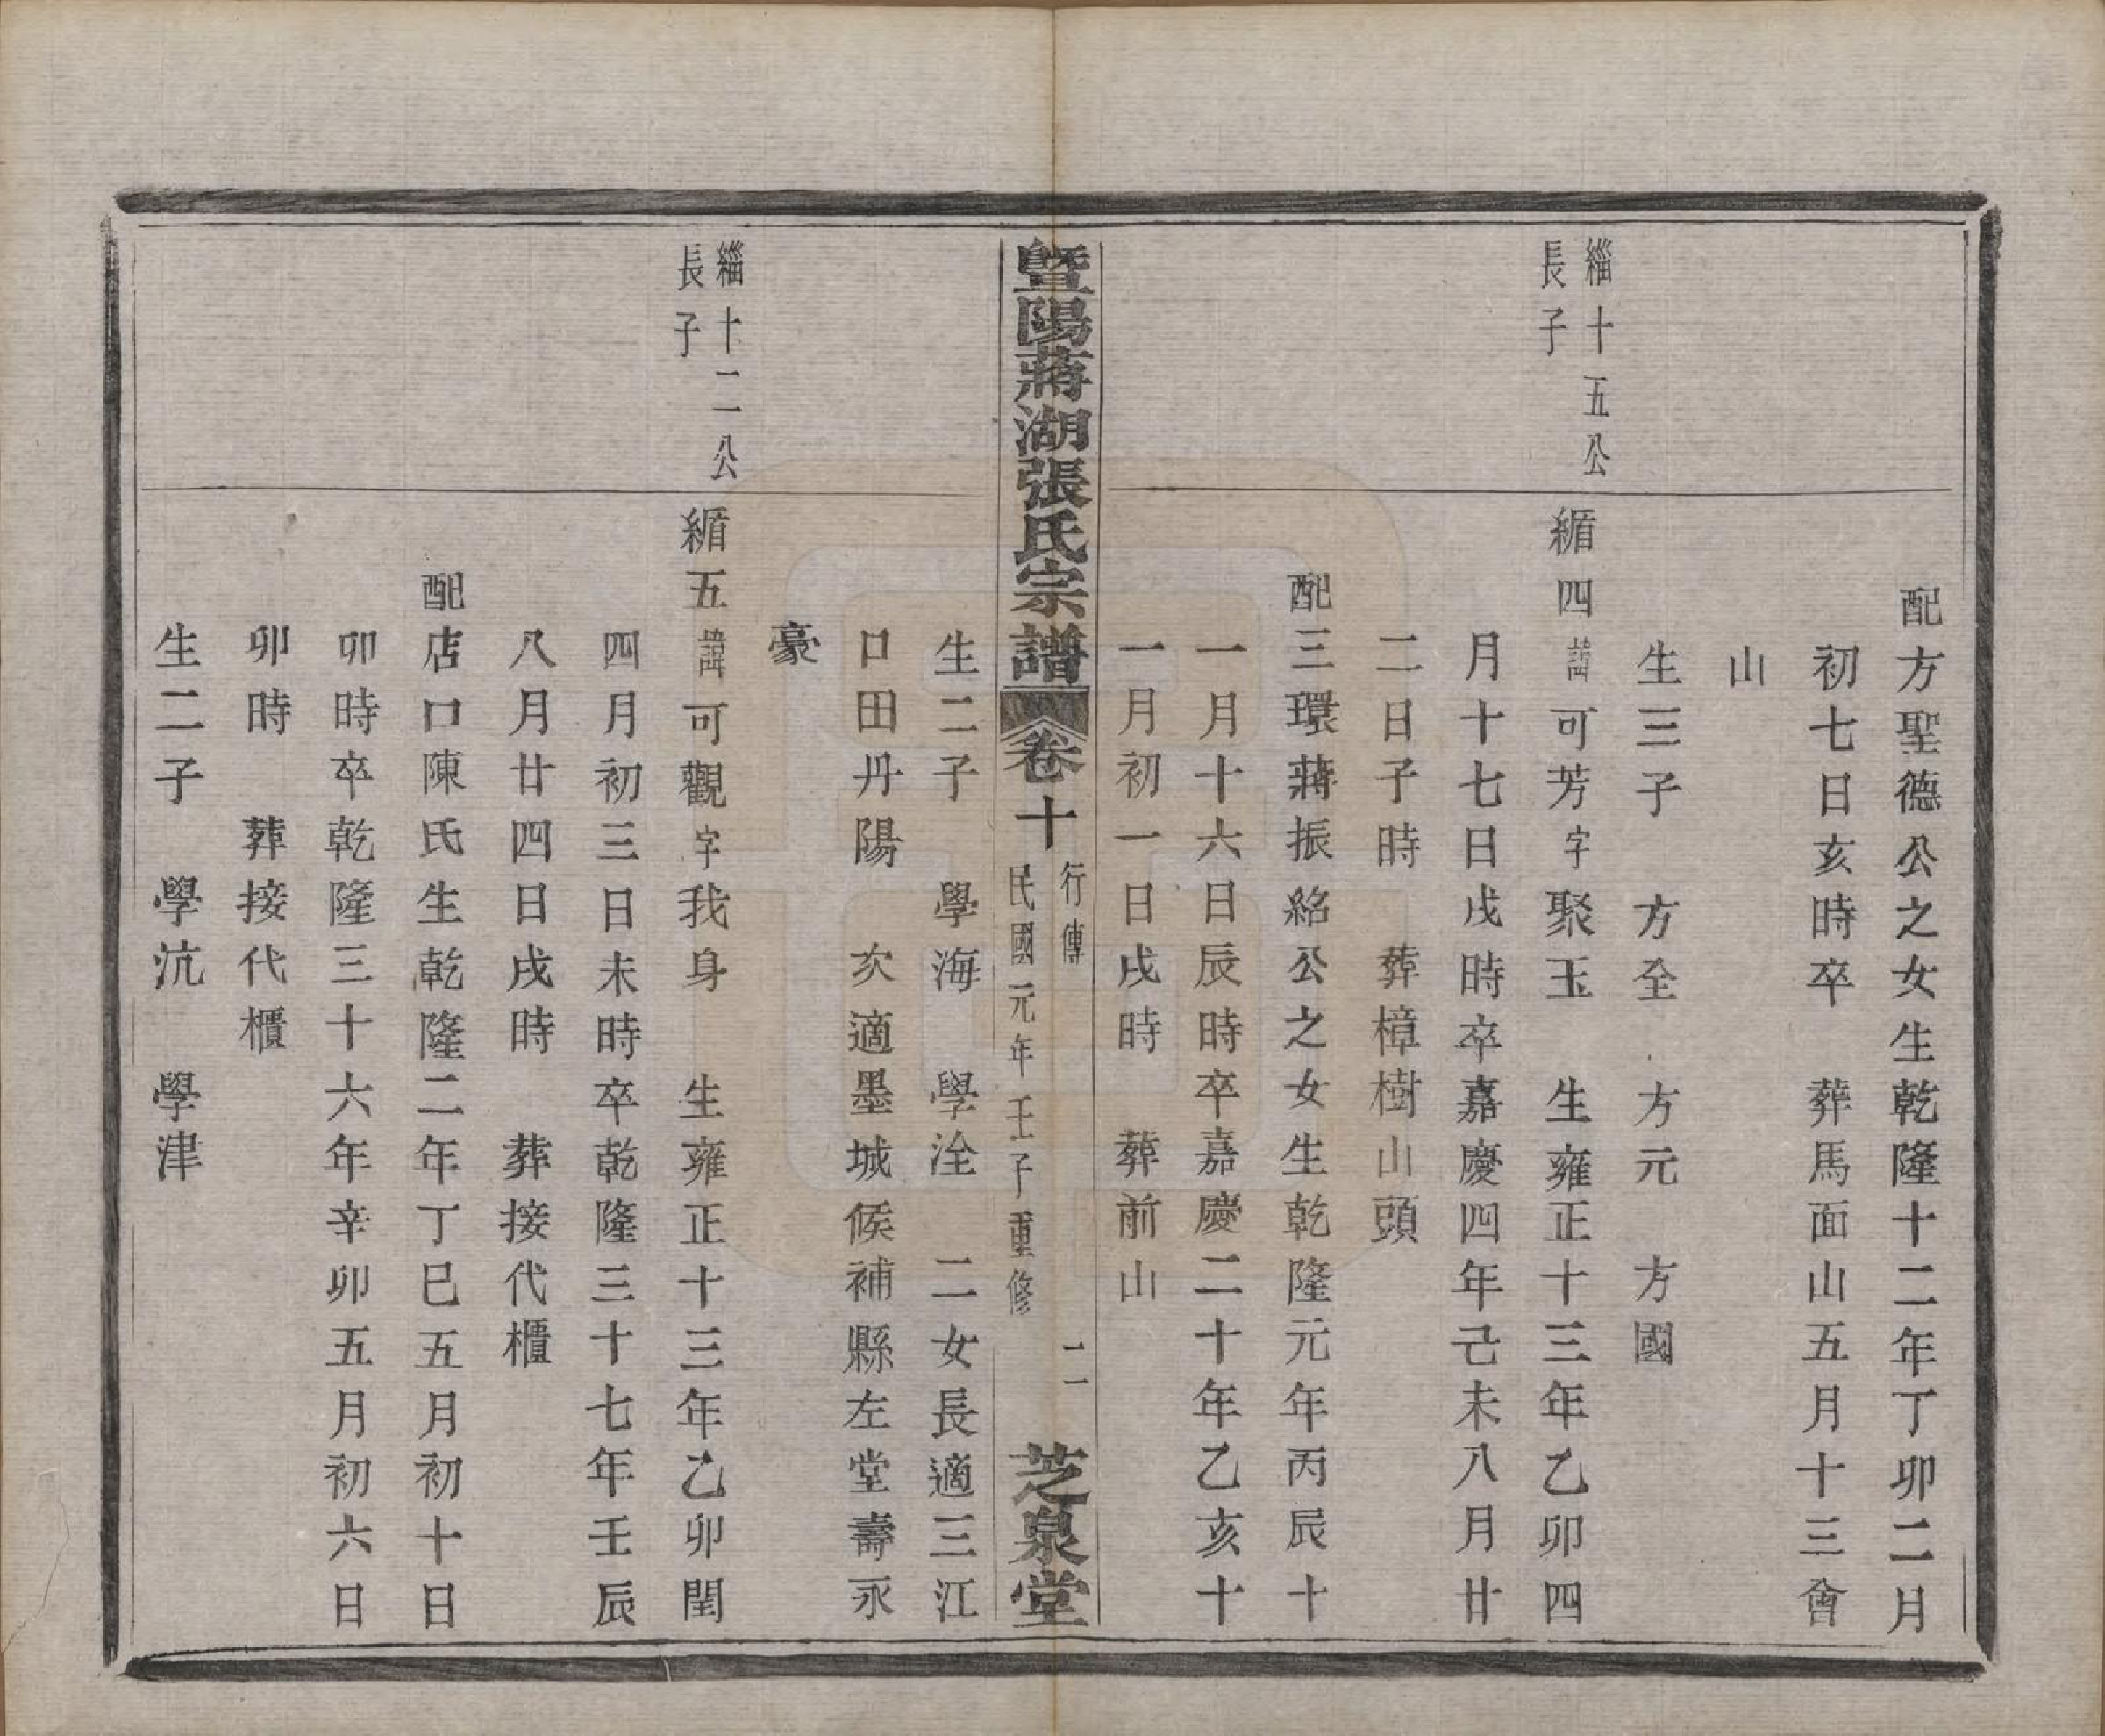 配方聖德公之女生乾隆十二年丁卯二月
初七日亥時卒　葬馬面山五月十三會
山
生三子　方全　方元　方國
緇十五公
長子
緧四諱可芳字聚玉　生雍正十三年乙卯四
月十七日戌時卒嘉慶四年己未八月廿
二日子時　葬樟樹山頭
配三環蔣振紹公之女生乾隆元年丙辰十
一月十六日辰時卒嘉慶二十年乙亥十
一月初一日戌時　葬前山
暨陽蔣湖張氏宗譜　卷十　行傳　民國元年壬子重修　二　芝泉堂
生二子　學海　學洤　二女長適三江
口田丹陽　次適墨城候補縣左堂壽永
豪
緇十二公
長子
緧五諱可觀字我身　生雍正十三年乙卯閏
四月初三日未時卒乾隆三十七年壬辰
八月廿四日戌時　葬接代櫃
配店口陳氏生乾隆二年丁巳五月初十日
卯時卒乾隆三十六年辛卯五月初六日
卯時　葬接代櫃
生二子　學沆　學津